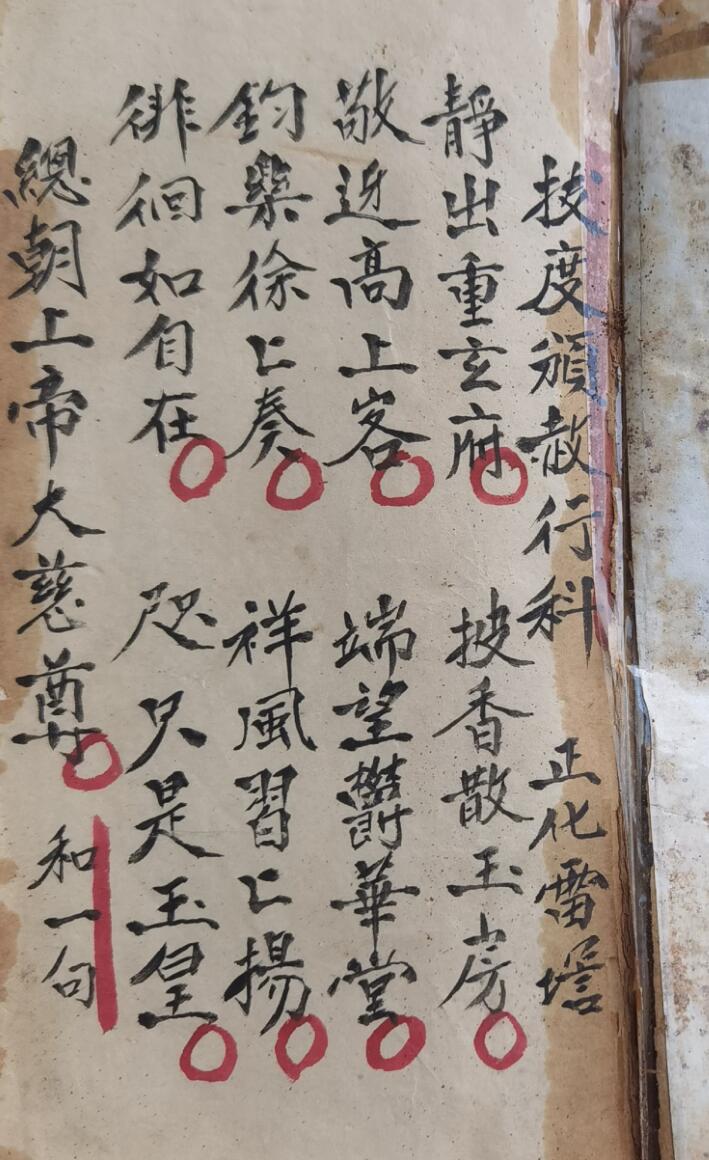 拔度頒赦行科 正化雷壇
靜出重玄府 披香散玉房
敬迓高上客 端望欝華堂
鈞樂徐〻奏 祥風習〻揚
徘徊如自在 咫尺是玉皇
總朝上帝大慈尊 和一句